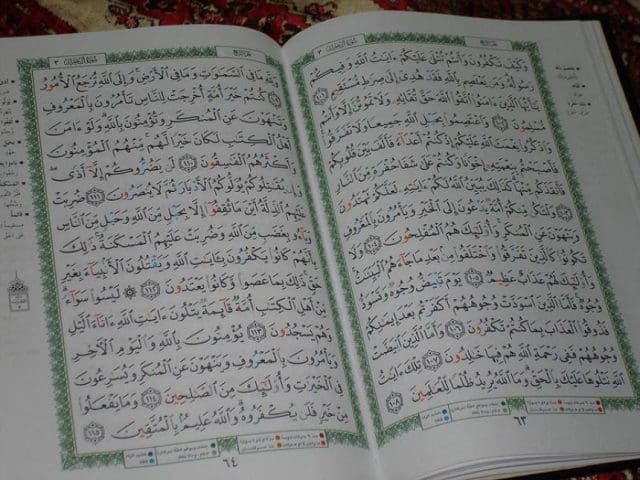 سورة آل عمران ٣
وَكَيْفَ تَكْفُرُونَ وَأَنتُمْ تُتْلَىٰ عَلَيْكُمْ ءَايَٰتُ ٱللَّهِ وَفِيكُمْ
رَسُولُهُۥ وَمَن يَعْتَصِم بِٱللَّهِ فَقَدْ هُدِىَ إِلَىٰ صِرَٰطٍ مُّسْتَقِيمٍ ١٠١
يَٰٓأَيُّهَا ٱلَّذِينَ ءَامَنُوا۟ ٱتَّقُوا۟ ٱللَّهَ حَقَّ تُقَاتِهِۦ وَلَا تَمُوتُنَّ إِلَّا وَأَنتُم
مُّسْلِمُونَ ١٠٢ وَٱعْتَصِمُوا۟ بِحَبْلِ ٱللَّهِ جَمِيعًا وَلَا تَفَرَّقُوا۟
وَٱذْكُرُوا۟ نِعْمَتَ ٱللَّهِ عَلَيْكُمْ إِذْ كُنتُمْ أَعْدَآءً فَأَلَّفَ بَيْنَ قُلُوبِكُمْ
فَأَصْبَحْتُم بِنِعْمَتِهِۦٓ إِخْوَٰنًا وَكُنتُمْ عَلَىٰ شَفَا حُفْرَةٍ مِّنَ ٱلنَّارِ
فَأَنقَذَكُم مِّنْهَا كَذَٰلِكَ يُبَيِّنُ ٱللَّهُ لَكُمْ ءَايَٰتِهِۦ لَعَلَّكُمْ تَهْتَدُونَ
١٠٣ وَلْتَكُن مِّنكُمْ أُمَّةٌ يَدْعُونَ إِلَى ٱلْخَيْرِ وَيَأْمُرُونَ بِٱلْمَعْرُوفِ
وَيَنْهَوْنَ عَنِ ٱلْمُنكَرِ وَأُو۟لَٰٓئِكَ هُمُ ٱلْمُفْلِحُونَ ١٠٤ وَلَا
تَكُونُوا۟ كَٱلَّذِينَ تَفَرَّقُوا۟ وَٱخْتَلَفُوا۟ مِنۢ بَعْدِ مَا جَآءَهُمُ ٱلْبَيِّنَٰتُ
وَأُو۟لَٰٓئِكَ لَهُمْ عَذَابٌ عَظِيمٌ ١٠٥ يَوْمَ تَبْيَضُّ وُجُوهٌ وَتَسْوَدُّ
وُجُوهٌ فَأَمَّا ٱلَّذِينَ ٱسْوَدَّتْ وُجُوهُهُمْ أَكَفَرْتُم بَعْدَ إِيمَٰنِكُمْ
فَذُوقُوا۟ ٱلْعَذَابَ بِمَا كُنتُمْ تَكْفُرُونَ ١٠٦ وَأَمَّا ٱلَّذِينَ ٱبْيَضَّتْ
وُجُوهُهُمْ فَفِى رَحْمَةِ ٱللَّهِ هُمْ فِيهَا خَٰلِدُونَ ١٠٧ تِلْكَ ءَايَٰتُ
ٱللَّهِ نَتْلُوهَا عَلَيْكَ بِٱلْحَقِّ وَمَا ٱللَّهُ يُرِيدُ ظُلْمًا لِّلْعَٰلَمِينَ ١٠٨
٦٣
سورة آل عمران ٣
وَلِلَّهِ مَا فِى ٱلسَّمَٰوَٰتِ وَمَا فِى ٱلْأَرْضِ وَإِلَى ٱللَّهِ تُرْجَعُ ٱلْأُمُورُ
١٠٩ كُنتُمْ خَيْرَ أُمَّةٍ أُخْرِجَتْ لِلنَّاسِ تَأْمُرُونَ بِٱلْمَعْرُوفِ
وَتَنْهَوْنَ عَنِ ٱلْمُنكَرِ وَتُؤْمِنُونَ بِٱللَّهِ وَلَوْ ءَامَنَ
أَهْلُ ٱلْكِتَٰبِ لَكَانَ خَيْرًا لَّهُم مِّنْهُمُ ٱلْمُؤْمِنُونَ
وَأَكْثَرُهُمُ ٱلْفَٰسِقُونَ ١١٠ لَن يَضُرُّوكُمْ إِلَّآ أَذًى
وَإِن يُقَٰتِلُوكُمْ يُوَلُّوكُمُ ٱلْأَدْبَارَ ثُمَّ لَا يُنصَرُونَ ١١١ ضُرِبَتْ
عَلَيْهِمُ ٱلذِّلَّةُ أَيْنَ مَا ثُقِفُوٓا۟ إِلَّا بِحَبْلٍ مِّنَ ٱللَّهِ وَحَبْلٍ مِّنَ ٱلنَّاسِ
وَبَآءُو بِغَضَبٍ مِّنَ ٱللَّهِ وَضُرِبَتْ عَلَيْهِمُ ٱلْمَسْكَنَةُ ذَٰلِكَ
بِأَنَّهُمْ كَانُوا۟ يَكْفُرُونَ بِـَٔايَٰتِ ٱللَّهِ وَيَقْتُلُونَ ٱلْأَنۢبِيَآءَ بِغَيْرِ
حَقٍّ ذَٰلِكَ بِمَا عَصَوا۟ وَّكَانُوا۟ يَعْتَدُونَ ١١٢ ۞ لَيْسُوا۟ سَوَآءً
مِّنْ أَهْلِ ٱلْكِتَٰبِ أُمَّةٌ قَآئِمَةٌ يَتْلُونَ ءَايَٰتِ ٱللَّهِ ءَانَآءَ ٱلَّيْلِ
وَهُمْ يَسْجُدُونَ ١١٣ يُؤْمِنُونَ بِٱللَّهِ وَٱلْيَوْمِ ٱلْءَاخِرِ
وَيَأْمُرُونَ بِٱلْمَعْرُوفِ وَيَنْهَوْنَ عَنِ ٱلْمُنكَرِ وَيُسَٰرِعُونَ
فِى ٱلْخَيْرَٰتِ وَأُو۟لَٰٓئِكَ مِنَ ٱلصَّٰلِحِينَ ١١٤ وَمَا يَفْعَلُوا۟
مِنْ خَيْرٍ فَلَن يُكْفَرُوهُ وَٱللَّهُ عَلِيمٌۢ بِٱلْمُتَّقِينَ ١١٥
٦٤